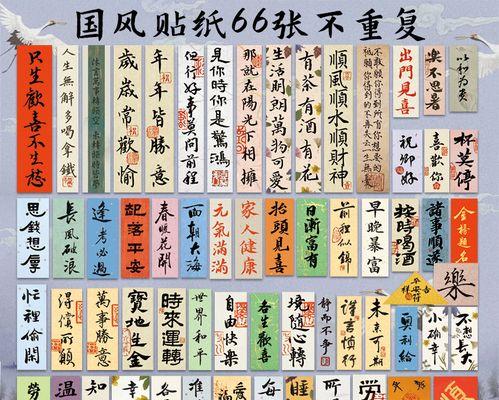 国风贴纸66张不重复
只生歡喜不生愁
人生無解多喝拿鐵
歲歲常歡愉
年年皆勝意
但行好事莫問前程
見你時你是驚鴻
那就在陽光下相擁
生活明朗萬物可愛
有茶有酒有花
順風順水順財神
出門見喜
樂不思蜀
以和為貴
祝卿好
喜歡你
杯莫停
思錢想厚
長風破浪
逢考必過
起落平安
春暖花開
面朝大海
元氣滿滿
家人健康
抬頭見喜
日漸富有
前程似錦
早晚暴富
按時喝酒
諸事順遂
金榜題名
樂
忙裡偷閒
得償所願
萬事勝意
寶地生金
時來運轉
世界和平
自由快樂
各生歡喜
境隨心轉
靜而不爭
謹言慎行
未来可期
奧利給
小確幸
不想長大
勞
温
知